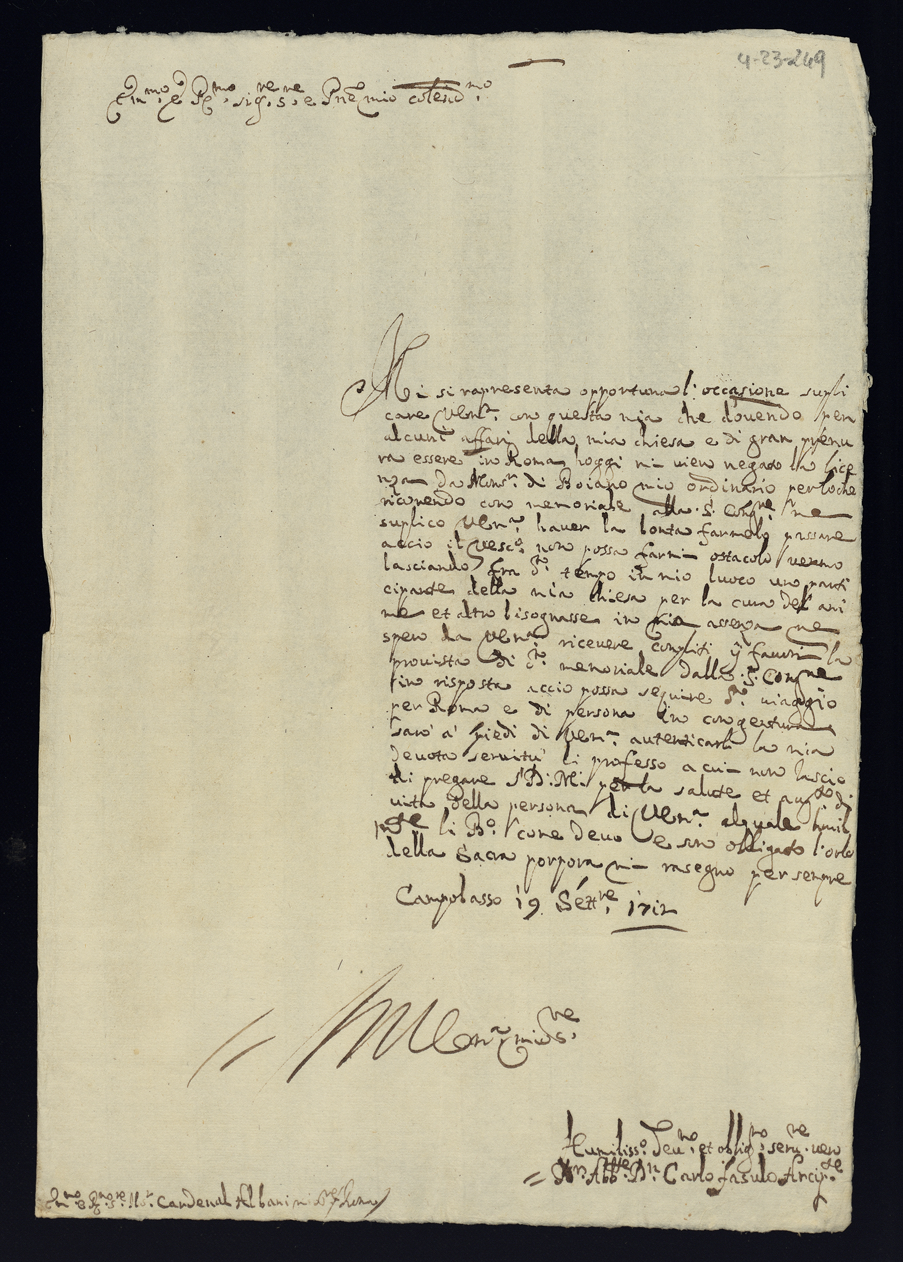 4-23-249
Em.mo e R.mo sig.re s.re e P.ne mio colend.mo
Mi si rapresenta opportuna l'occasione supli
care Vem.a con questa mia che dovendo per
alcuni affari della mia chiesa e di gran premu
ra essere in Roma hoggi mi vien negato la lice
nza da Mons.r di Boiano mio ordinario per loche
ricorrendo con memoriale alla S. Cong.ne ne
suplico Vem.a haver la bonta farmelo passare
accio il Vesc.o non possa farmi ostacolo veruno
lasciando fra d.o tempo in mio luoco uno parti
cipante della mia chiesa per la cura del ani
me et altro bisognasse in mia assenza ne
spero da Vem.a ricevere compliti i favori la
provista di d.o memoriale dalla S. Cong.ne
in risposta accio possa seguire d.o viaggio
per Roma e di persona in congertura
saro a' piedi di Vem.a autenticarli la mia
devota servitù li professo a cui non lascio
di pregare S.D.M. per la salute et aug.to di
vita della persona di Vem.a al quale humil
m.te li B.o come devo e son obligato l'orlo
della Sacra porpora mi rasegno per sempre
Campobasso 19 Sett.re 1712
Vem.a
Humiliss.o Dev.mo et oblig.mo serv.re vero
Abb.te D.n Carlo Fasulo Arcip.te
Cardenal Albani